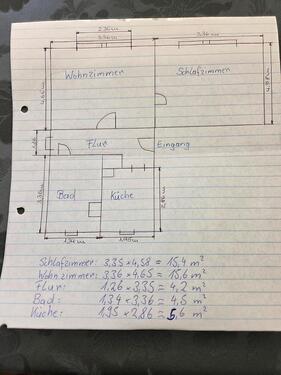 3,36m
Wohnzimmer
Schlafzimmer
Flur
Eingang
Bad
Küche
1,34m
1,95m
2,86m
Schlafzimmer: 3,35 × 4,58 = 15,4 m²
Wohnzimmer: 3,36 × 4,65 = 15,6 m²
Flur: 1,26 × 3,35 = 4,2 m²
Bad: 1,34 × 3,36 = 4,5 m²
Küche: 1,95 × 2,86 = 5,6 m²